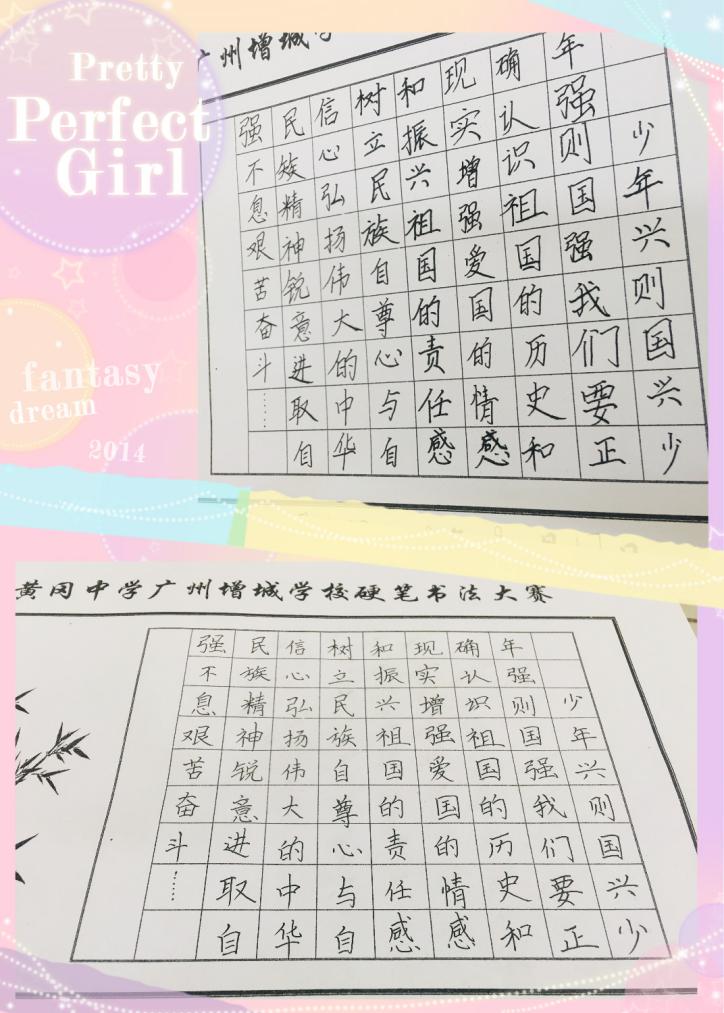 Pretty
Perfect
Girl
广州增城
少年兴则国兴少
年强则国强我们要正
确认识祖国的历史和
现实增强爱国的情感
和振兴祖国的责任感
树立民族自尊心与自
信心弘扬伟大的中华
民族精神锐意进取自
强不息艰苦奋斗……
fantasy
dream
2014
黄冈中学广州增城学校硬笔书法大赛
少年兴则国兴少
年强则国强我们要正
确认识祖国的历史和
现实增强爱国的情感
和振兴祖国的责任感
树立民族自尊心与自
信心弘扬伟大的中华
民族精神锐意进取自
强不息艰苦奋斗……